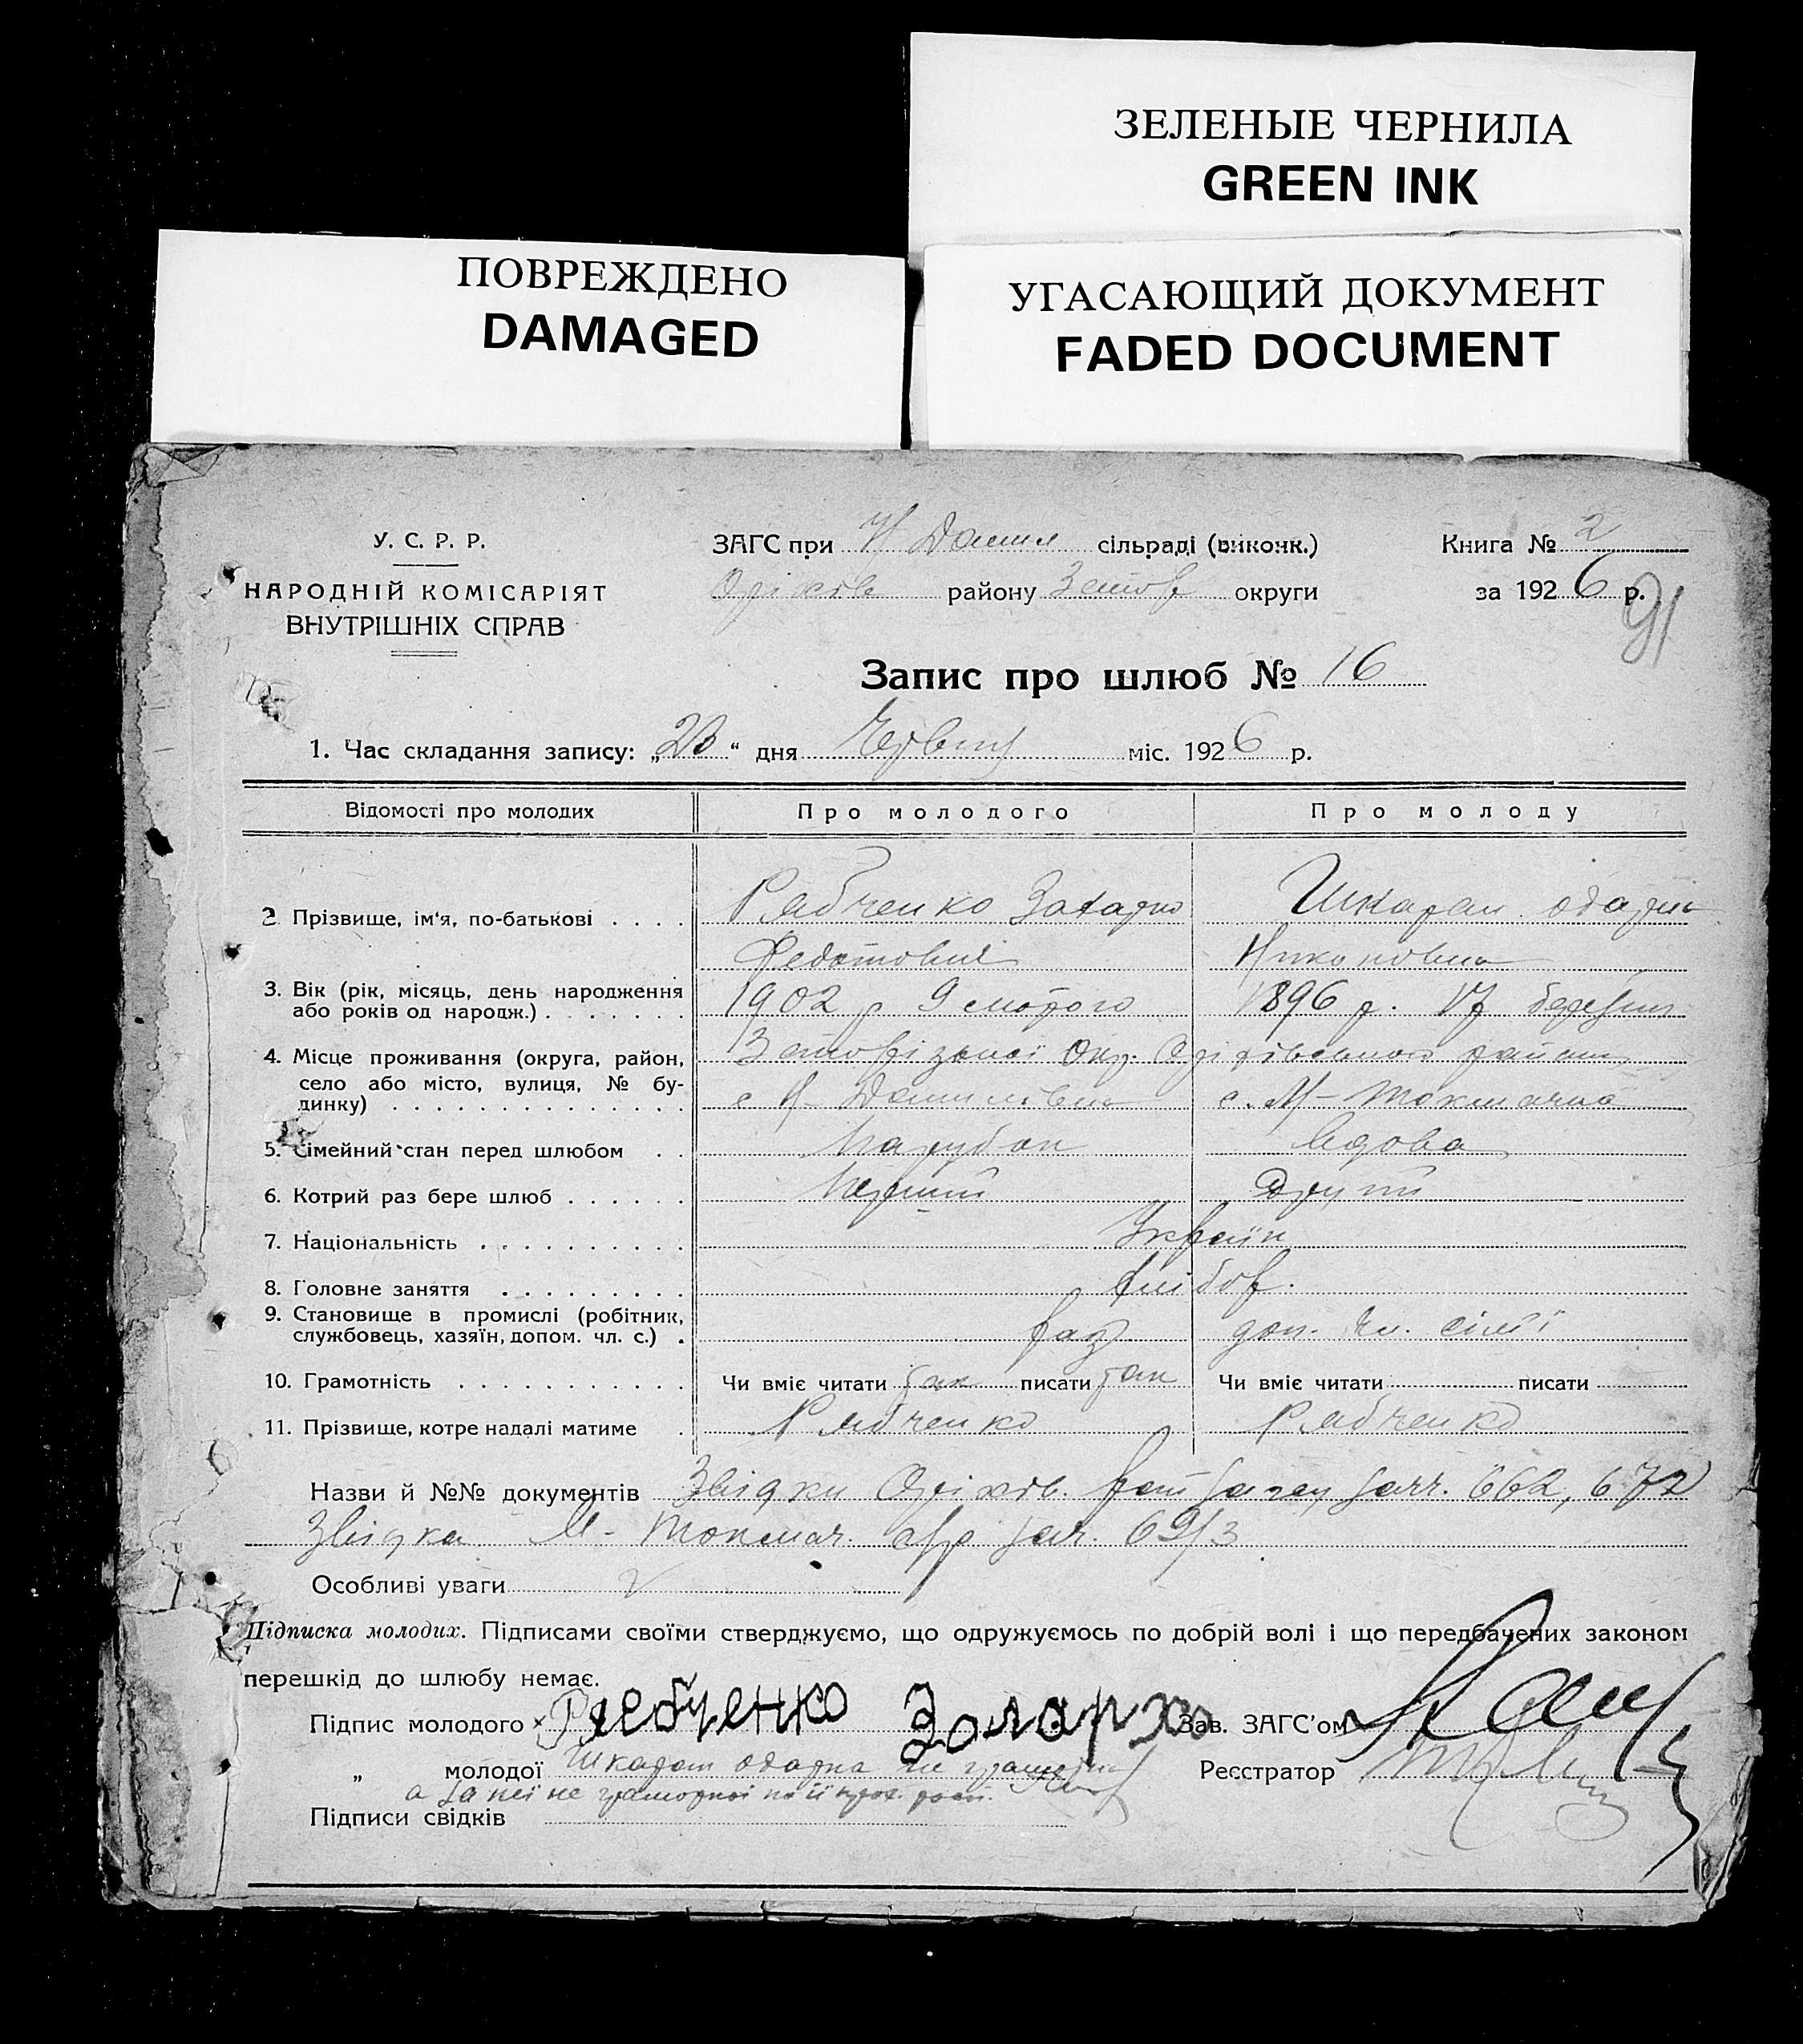 ЗЕЛЕНЫЕ ЧЕРНИЛА
GREEN INK
ПОВРЕЖДЕНО
DAMAGED
УГАСАЮЩИЙ ДОКУМЕНТ
FADED DOCUMENT
У. С. Р. Р.
НАРОДНІЙ КОМІСАРІЯТ
ВНУТРІШНІХ СПРАВ
ЗАГС при Н Данил сільраді (виконк.)
Оріхів району округи
Книга № 2
за 1926 р.
91
Запис про шлюб № 16
1. Час складання запису: „23“ дня Червня міс. 1926 р.
Відомості про молодих Про молодого Про молоду
2. Прізвище, ім'я, по-батькові . . . . Рябченко Захарко Шкаран Одарка
Федотович Никоновна
3. Вік (рік, місяць, день народження або років од народж.) . . . . . . . 1902 р 9 лютого 1896 р. 17 березня
4. Місце проживання (округа, район, село або місто, вулиця, № будинку) . . . . . . . . . . . . . . . Запорізької Окр. Оріхівського району
с Н-Данилівка с. М-Токмачка
5. Сімейний стан перед шлюбом . . Парубок Вдова
6. Котрий раз бере шлюб . . . . . . Перший Другий
7. Національність . . . . . . . . . . Україн
8. Головне заняття . . . . . . . . . Хлібор.
9. Становище в промислі (робітник, службовець, хазяїн, допом. чл. с.) . хаз доп. чл. сім'ї
10. Грамотність . . . . . . . . . . . Чи вміє читати так писати так Чи вміє читати писати
11. Прізвище, котре надалі матиме . Рябченко Рябченко
Назви й №№ документів Звідки Оріхів. 662, 672
Звідка М-Токмач. с/р 69/3
Особливі уваги
Підписка молодих. Підписами своїми стверджуємо, що одружуємось по добрій волі і що передбачених законом
перешкід до шлюбу немає.
Підпис молодого Рябченко Зав. ЗАГС'ом
„ молодої Одарка не грамотна Реєстратор
а за неї не грамотної по її
Підписи свідків